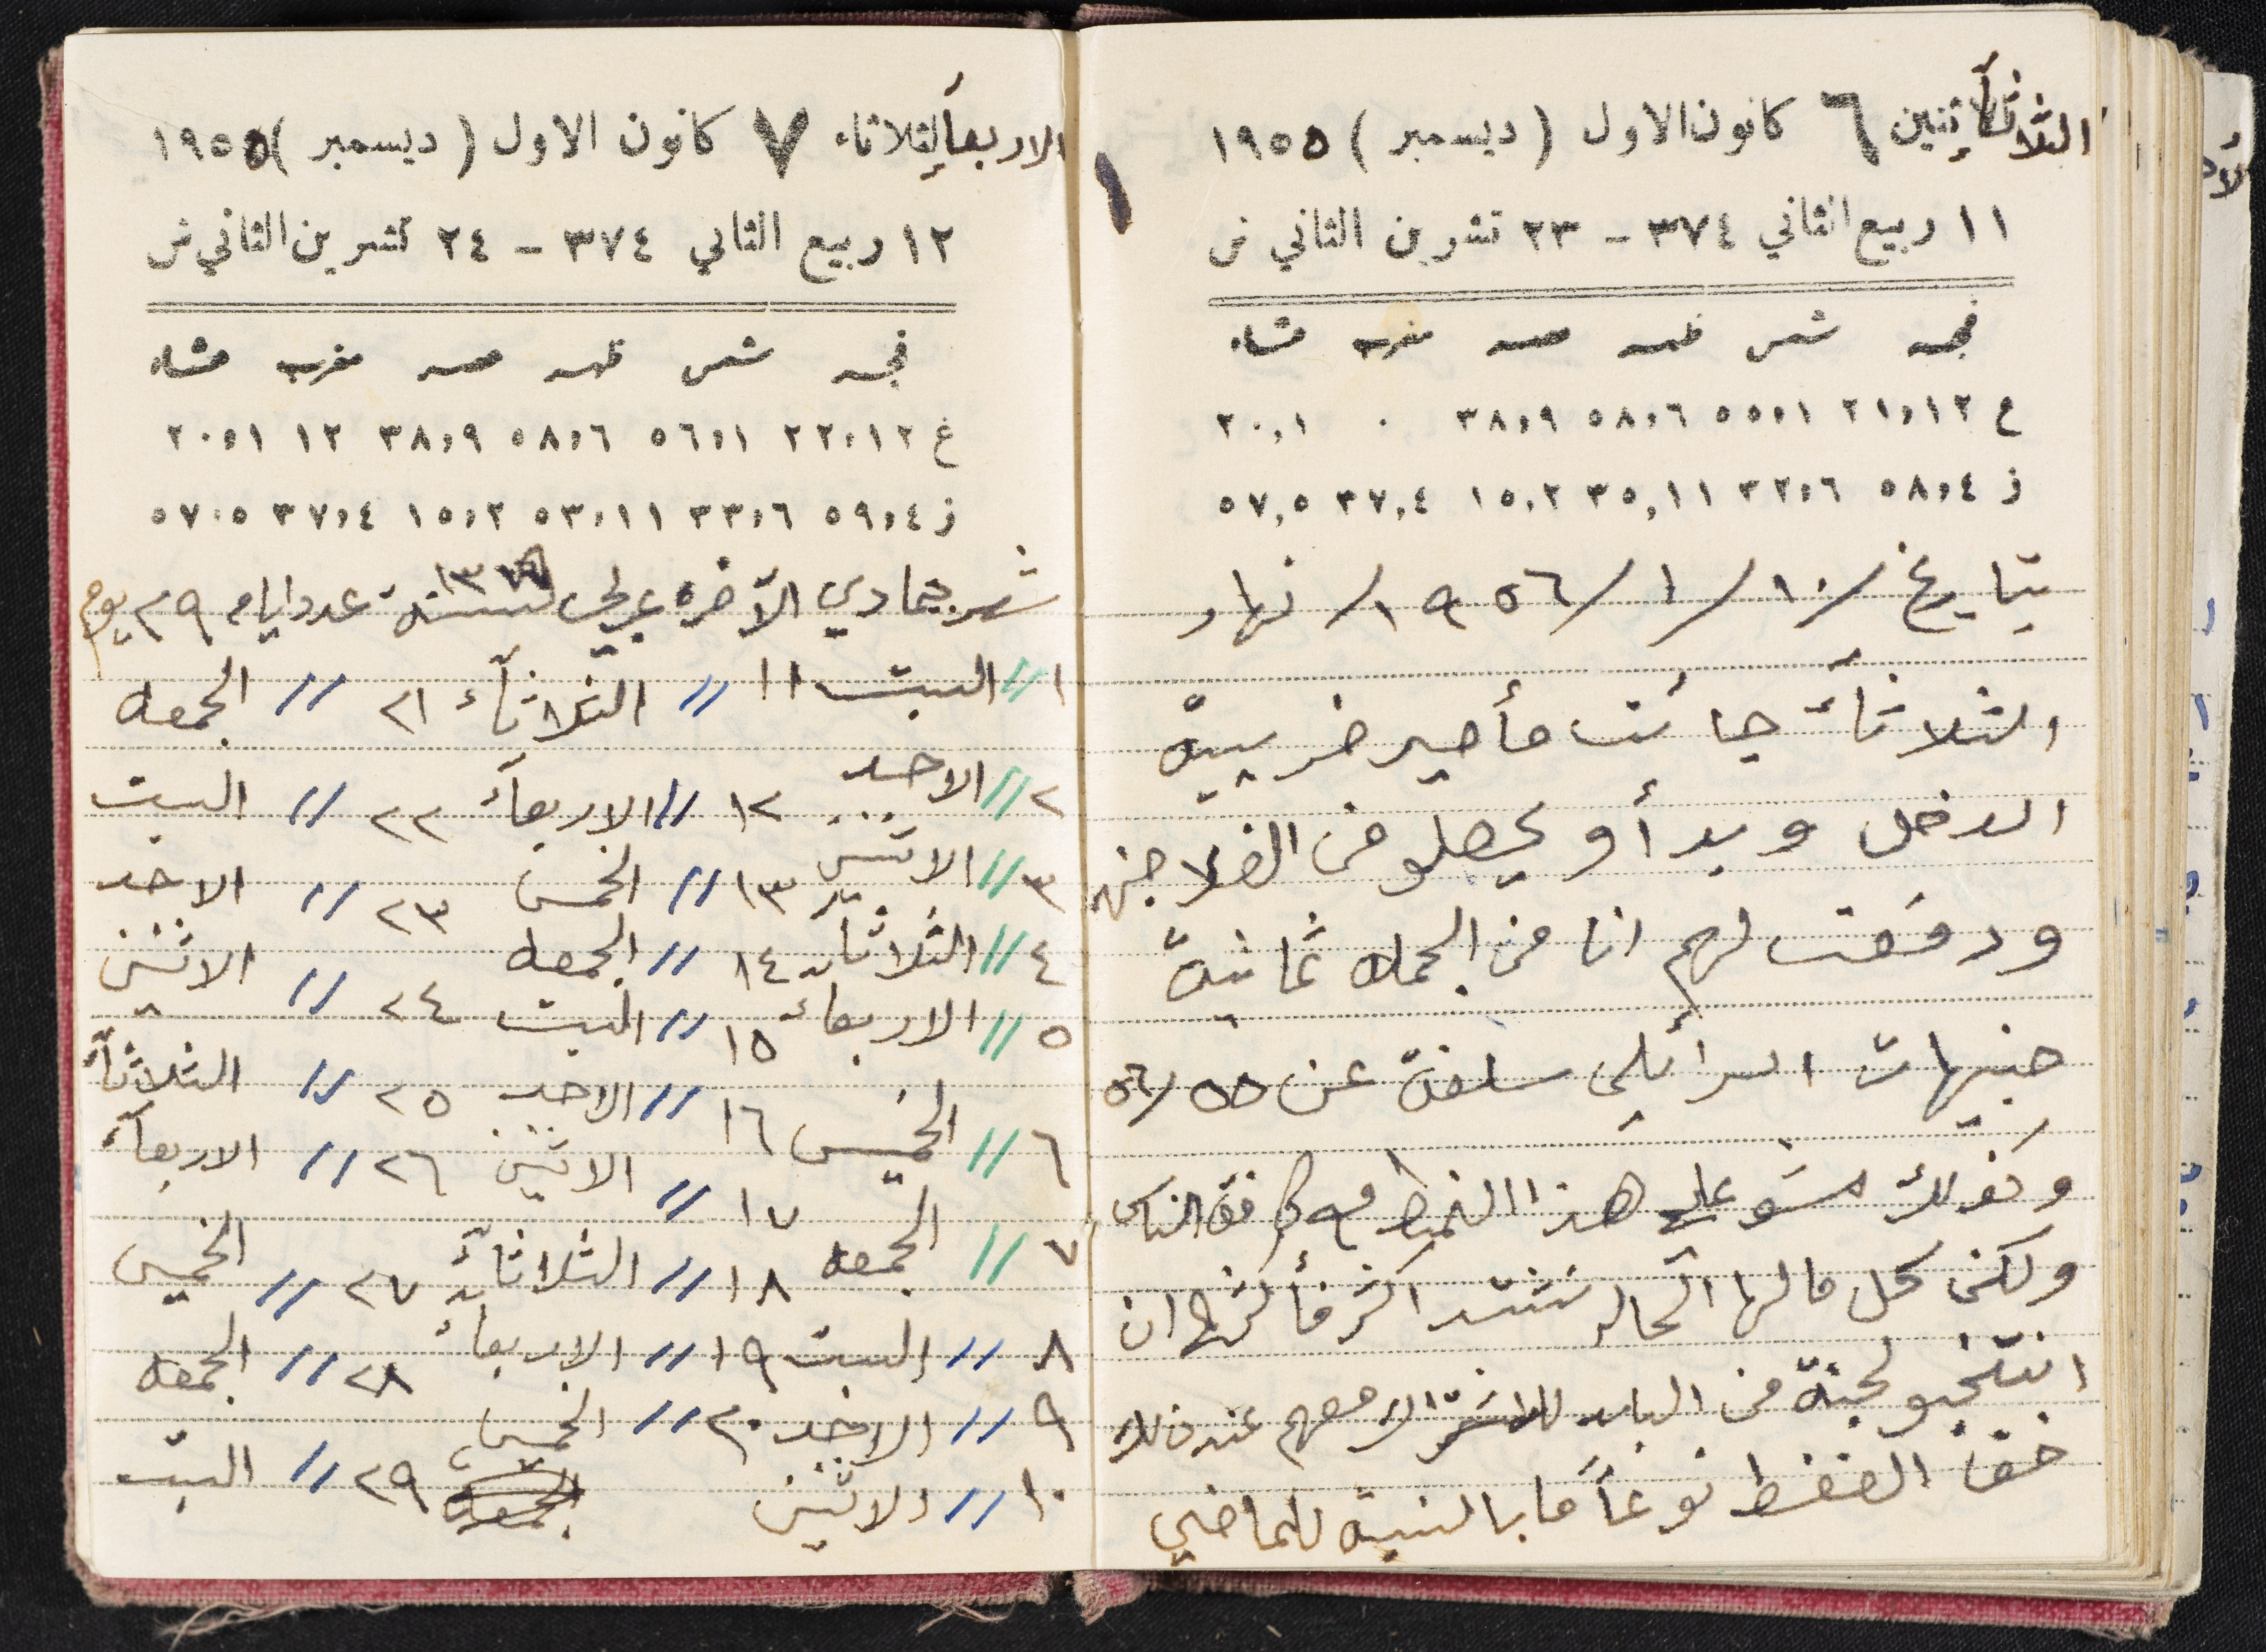 الثلاثاء الاثنين ٦ كانون الاول ( ديسمبر ) ١٩٥٥
١١ ربيع الثاني ٣٧٤ – ٢٣ تشرين الثاني ش
فجر شمس ظهر عصر مغرب عشاء
ع ٢١،١٢ ٥٥،١ ٥٨،٦ ٣٨،٩ ٠ ٢٠،١
ز ٥٨،٤ ٣٢،٦ ٣٥،١١ ١٥،٢ ٣٧،٤ ٥٧،٥
بتاريخ /١٠/ ١/ ١٩٥٦/ نهار
الثلاثآء جائت مأمير ضريبة
الدخل وبدأو يحصلو من الفلاحين
ودفعت لهم انا من الجمله ثمانية
جنيهات اسرائيلي سلفة عن ٥٥/٥٦
وكذلك مشو على هذا النمط مع كافة الناس
ولكن كل مالها الحاله تشتد اكثر فأكثر الى ان
انتخبو لجنة من البلد للاشتراك معهم عند ذلك
خف الضغط نوعاً ما بالنسبة للماضي
الاربعآء الثلاثاء ٧ كانون الاول ( ديسمبر ) ١٩٥٥
١٢ ربيع الثاني ٣٧٤ – ٢٤ تشرين الثاني ش
فجر شمس ظهر عصر مغرب عشاء
غ ٢٢،١٢ ٥٦،١ ٥٨،٦ ٣٨،٩ ١٢ ٢٠،١
ز ٥٩،٤ ٣٣،٦ ٥٣،١١ ١٥،٢ ٣٧،٤ ٥٧،٥
شهر جمادي الآخره عربي لسنة عدد ايام ٢٩ يوم
١ // السبت ١١ // الثلاثآء ٢١ // الجمعه
٢ // الاحد ١٢ // الاربعآء ٢٢ // السبت
٣ // الاثنين ١٣ // الخميس ٢٣ // الاحد
٤ // الثلاثاء ١٤ // الجمعه ٢٤ // الاثنين
٥ // الاربعاء ١٥ // السبت ٢٥ // الثلاثآء
٦ // الخميس ١٦ // الاحد ٢٦ // الاربعآء
٧ // الجمعه ١٧ // الاثنين ٢٧ // الخميس
٨ // السبت ١٨ // الثلاثآء ٢٨ // الجمعه
٩ // الاحد ١٩ // الاربعاء ٢٩ // السبت
١٠ // الاثنين ٢٠ // الخميس